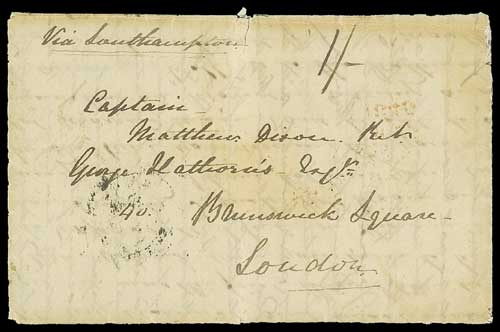 Via Southampton
1/-
Captain
Matthew Dixon.
George Hathorn's Esqre
40. Brunswick Square
London